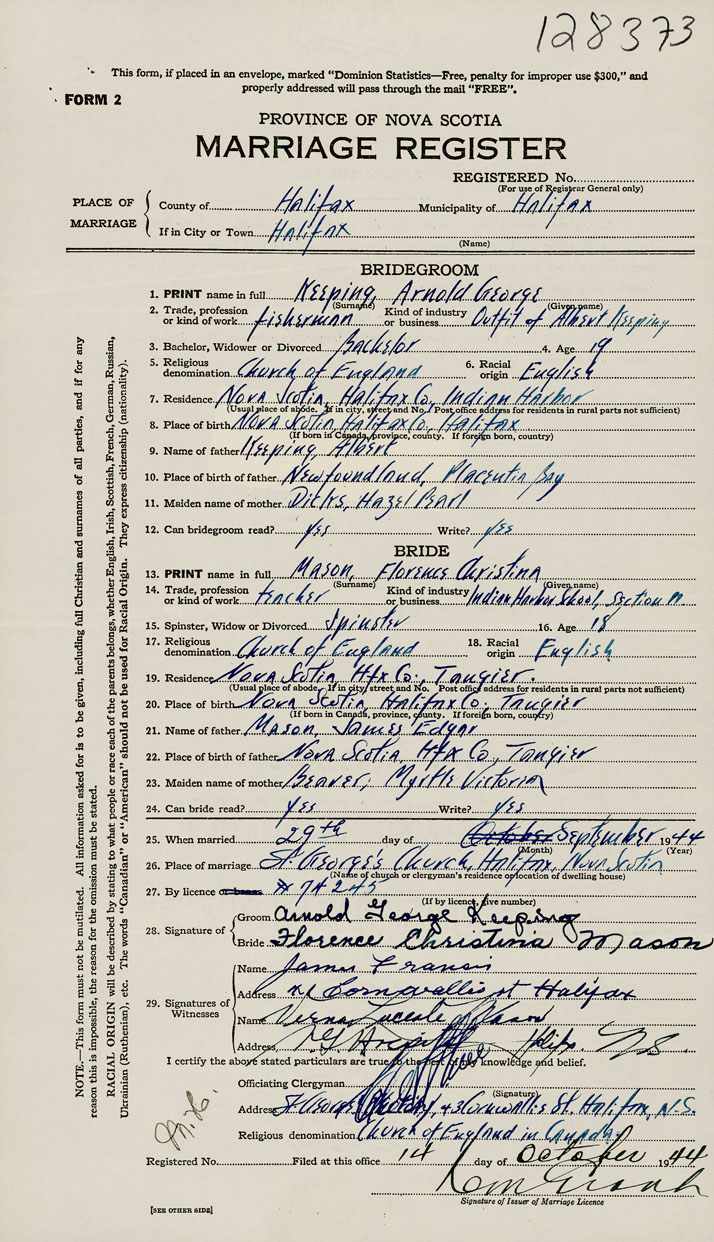 128373
This form, if placed in an envelope, marked "Dominion Statistics—Free, penalty for improper use $300," and
properly addressed will pass through the mail "FREE".
FORM 2
PROVINCE OF NOVA SCOTIA
MARRIAGE REGISTER
REGISTERED No.
(For use of Registrar General only)
PLACE OF MARRIAGE
County of Halifax Municipality of Halifax
If in City or Town Halifax
(Name)
BRIDEGROOM
1. PRINT name in full Keeping, Arnold George
(Surname) (Given name)
2. Trade, profession or kind of work fisherman Kind of industry or business Outfit of Albert Keeping
3. Bachelor, Widower or Divorced Bachelor 4. Age 19
5. Religious denomination Church of England 6. Racial origin English
7. Residence Nova Scotia, Halifax Co, Indian Harbor
(Usual place of abode. If in city, street and No. Post office address for residents in rural parts not sufficient)
8. Place of birth Nova Scotia, Halifax Co, Halifax
(If born in Canada, province, county. If foreign born, country)
9. Name of father Keeping, Albert
10. Place of birth of father Newfoundland, Placentia Bay
11. Maiden name of mother Dicks, Hazel Pearl
12. Can bridegroom read? yes Write? yes
BRIDE
13. PRINT name in full Mason, Florence Christina
(Surname) (Given name)
14. Trade, profession or kind of work teacher Kind of industry or business Indian Harbor School, Section
15. Spinster, Widow or Divorced Spinster 16. Age 18
17. Religious denomination Church of England 18. Racial origin English
19. Residence Nova Scotia, Hfx Co., Tangier.
(Usual place of abode. If in city, street and No. Post office address for residents in rural parts not sufficient)
20. Place of birth Nova Scotia, Halifax Co, Tangier
(If born in Canada, province, county. If foreign born, country)
21. Name of father Mason, James Edgar
22. Place of birth of father Nova Scotia, Hfx Co, Tangier
23. Maiden name of mother Beaver, Myrtle Victoria
24. Can bride read? yes Write? yes
25. When married 29th day of October September 1944
(Month) (Year)
26. Place of marriage St. George's Church, Halifax, Nova Scotia
(Name of church or clergyman's residence or location of dwelling house)
27. By licence
(If by licence, give number)
28. Signature of
Groom Arnold George Keeping
Bride Florence Christina Mason
29. Signatures of Witnesses
Name James Francis
Address Cornwallis st Halifax
Name Verna Mason
Address Hospital Halifx. N.S.
I certify the above stated particulars are true to the best of my knowledge and belief.
Officiating Clergyman
(Signature)
Address St. George's 43 Cornwallis St. Halifax, N.S.
Religious denomination Church of England in Canada
Registered No. Filed at this office 14 day of October 1944
Signature of Issuer of Marriage Licence
[SEE OTHER SIDE]
NOTE.—This form must not be mutilated. All information asked for is to be given, including full Christian and surnames of all parties, and if for any
reason this is impossible, the reason for the omission must be stated.
RACIAL ORIGIN will be described by stating to what people or race each of the parents belongs, whether English, Irish, Scottish, French, German, Russian,
Ukrainian (Ruthenian), etc. The words "Canadian" or "American" should not be used for Racial Origin. They express citizenship (nationality).